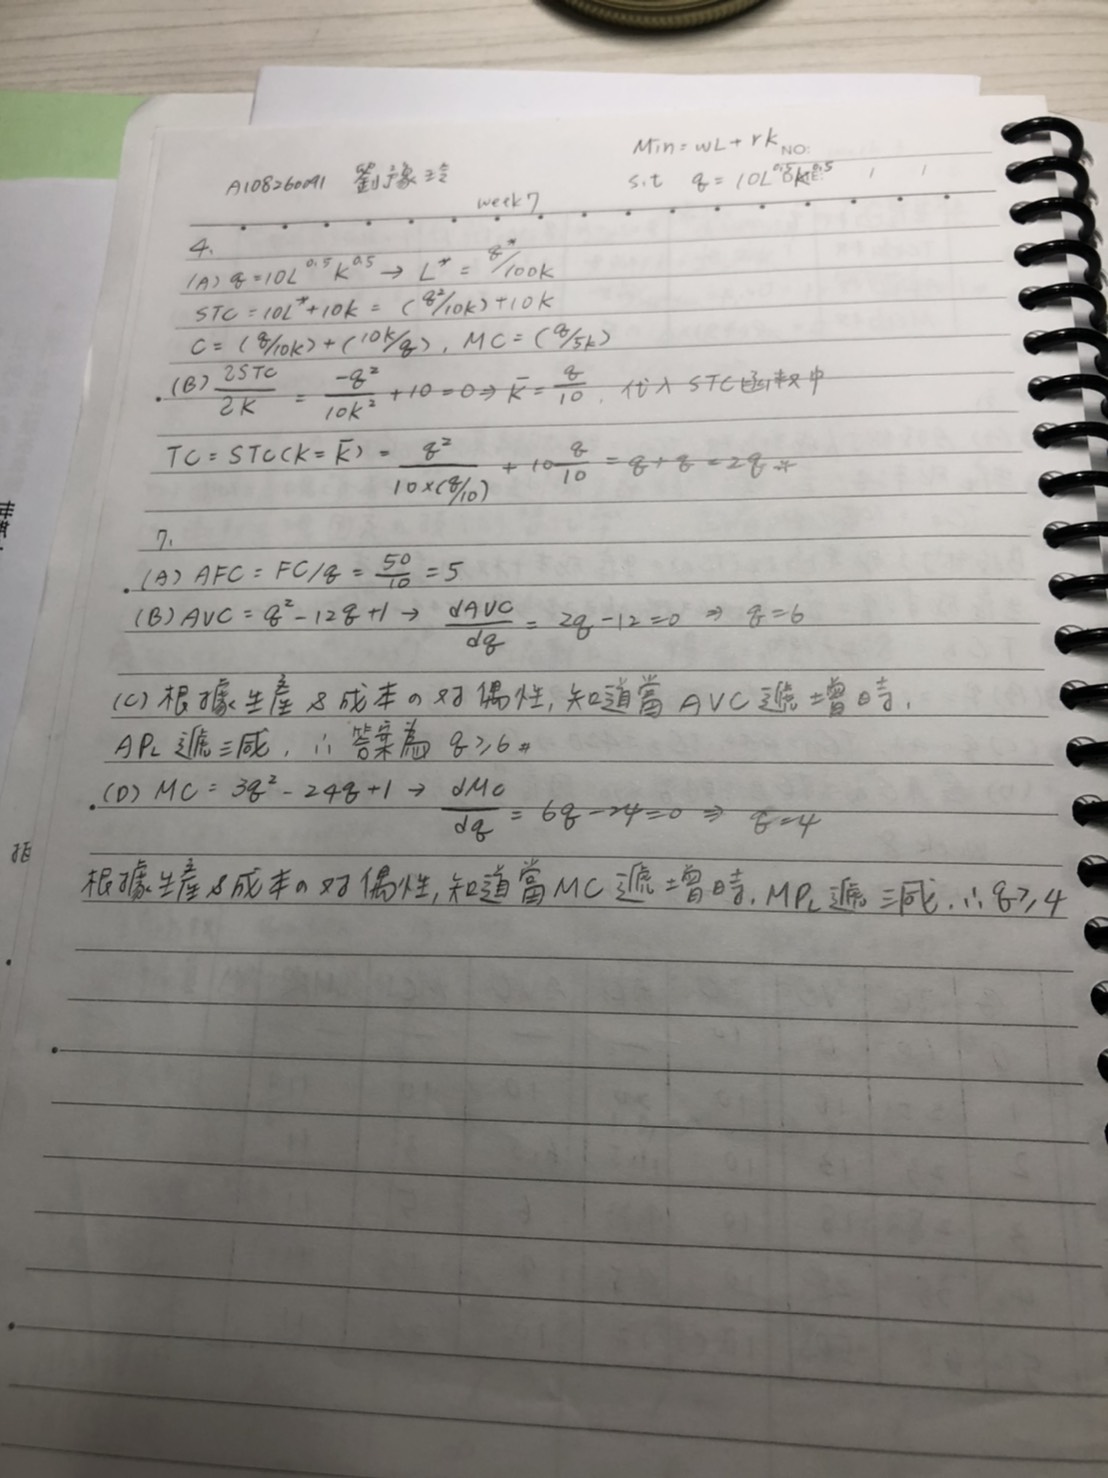 Min = wL + rk
NO:
A108260091 劉豫玲
s.t q = 10L^0.5 K^0.5
week7
4.
(A) q = 10L^0.5 K^0.5 → L* = q*/100K
STC = 10L* + 10K = (q²/10K) + 10K
C = (q/10K) + (10K/q), MC = (q/5K)
(B) 2STC/2K = -q²/10K² + 10 = 0 ⇒ K̄ = q/10. 代入 STC函數中
TC = STC(K = K̄) = q²/10×(q/10) + 10 q/10 = q + q = 2q #
7.
(A) AFC = FC/q = 50/10 = 5
(B) AVC = q² - 12q + 1 → dAVC/dq = 2q - 12 = 0 ⇒ q = 6
(C) 根據生產&成本の对偶性, 知道當 AVC 遞增時,
APL 遞減, ∴ 答案為 q ≥ 6 #
(D) MC = 3q² - 24q + 1 → dMC/dq = 6q - 24 = 0 ⇒ q = 4
根據生產&成本の对偶性, 知道當 MC 遞增時, MPL 遞減, ∴ q ≥ 4